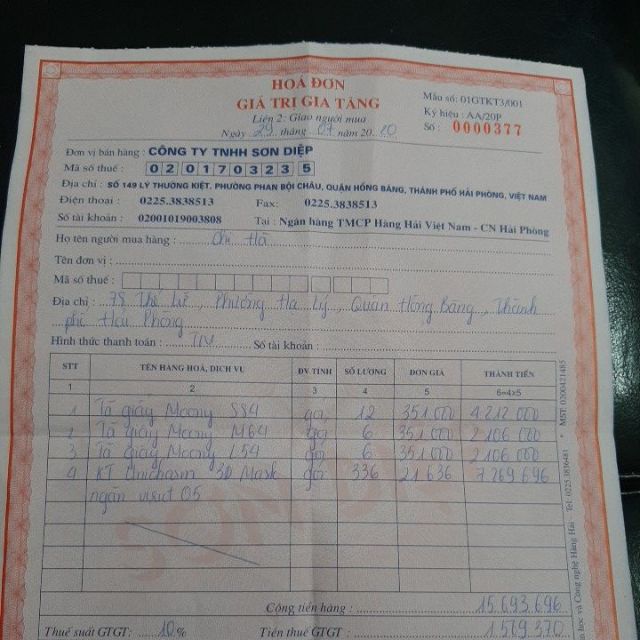 HOÁ ĐƠN
GIÁ TRỊ GIA TĂNG
Liên 2: Giao người mua
Ngày 29 tháng 07 năm 20 20
Mẫu số: 01GTKT3/001
Ký hiệu : AA/20P
Số : 0000377
Đơn vị bán hàng : CÔNG TY TNHH SƠN DIỆP
Mã số thuế : 0201703235
Địa chỉ : SỐ 149 LÝ THƯỜNG KIỆT, PHƯỜNG PHAN BỘI CHÂU, QUẬN HỒNG BÀNG, THÀNH PHỐ HẢI PHÒNG, VIỆT NAM
Điện thoại : 0225.3838513 Fax: 0225.3838513
Số tài khoản : 02001019003808 Tại : Ngân hàng TMCP Hàng Hải Việt Nam - CN Hải Phòng
Họ tên người mua hàng : Chị Hà
Tên đơn vị :
Mã số thuế :
Địa chỉ : 78 Thế Lữ, Phường Hạ Lý, Quận Hồng Bàng, Thành
phố Hải Phòng
Hình thức thanh toán : TM Số tài khoản :
STT TÊN HÀNG HOÁ, DỊCH VỤ ĐV TÍNH SỐ LƯỢNG ĐƠN GIÁ THÀNH TIỀN
1 2 3 4 5 6=4x5
1 Tã giấy Moony S84 gói 12 351.000 4.212.000
2 Tã giấy Moony M64 gói 6 351.000 2.106.000
3 Tã giấy Moony L54 gói 6 351.000 2.106.000
4 KT Unicharm 3D Mask gói 336 21.636 7.269.696
ngăn virut 05
Cộng tiền hàng : 15.693.696
Thuế suất GTGT: 10 % Tiền thuế GTGT : 1.569.370
MST 0200421485
Tel: 0225.3836481